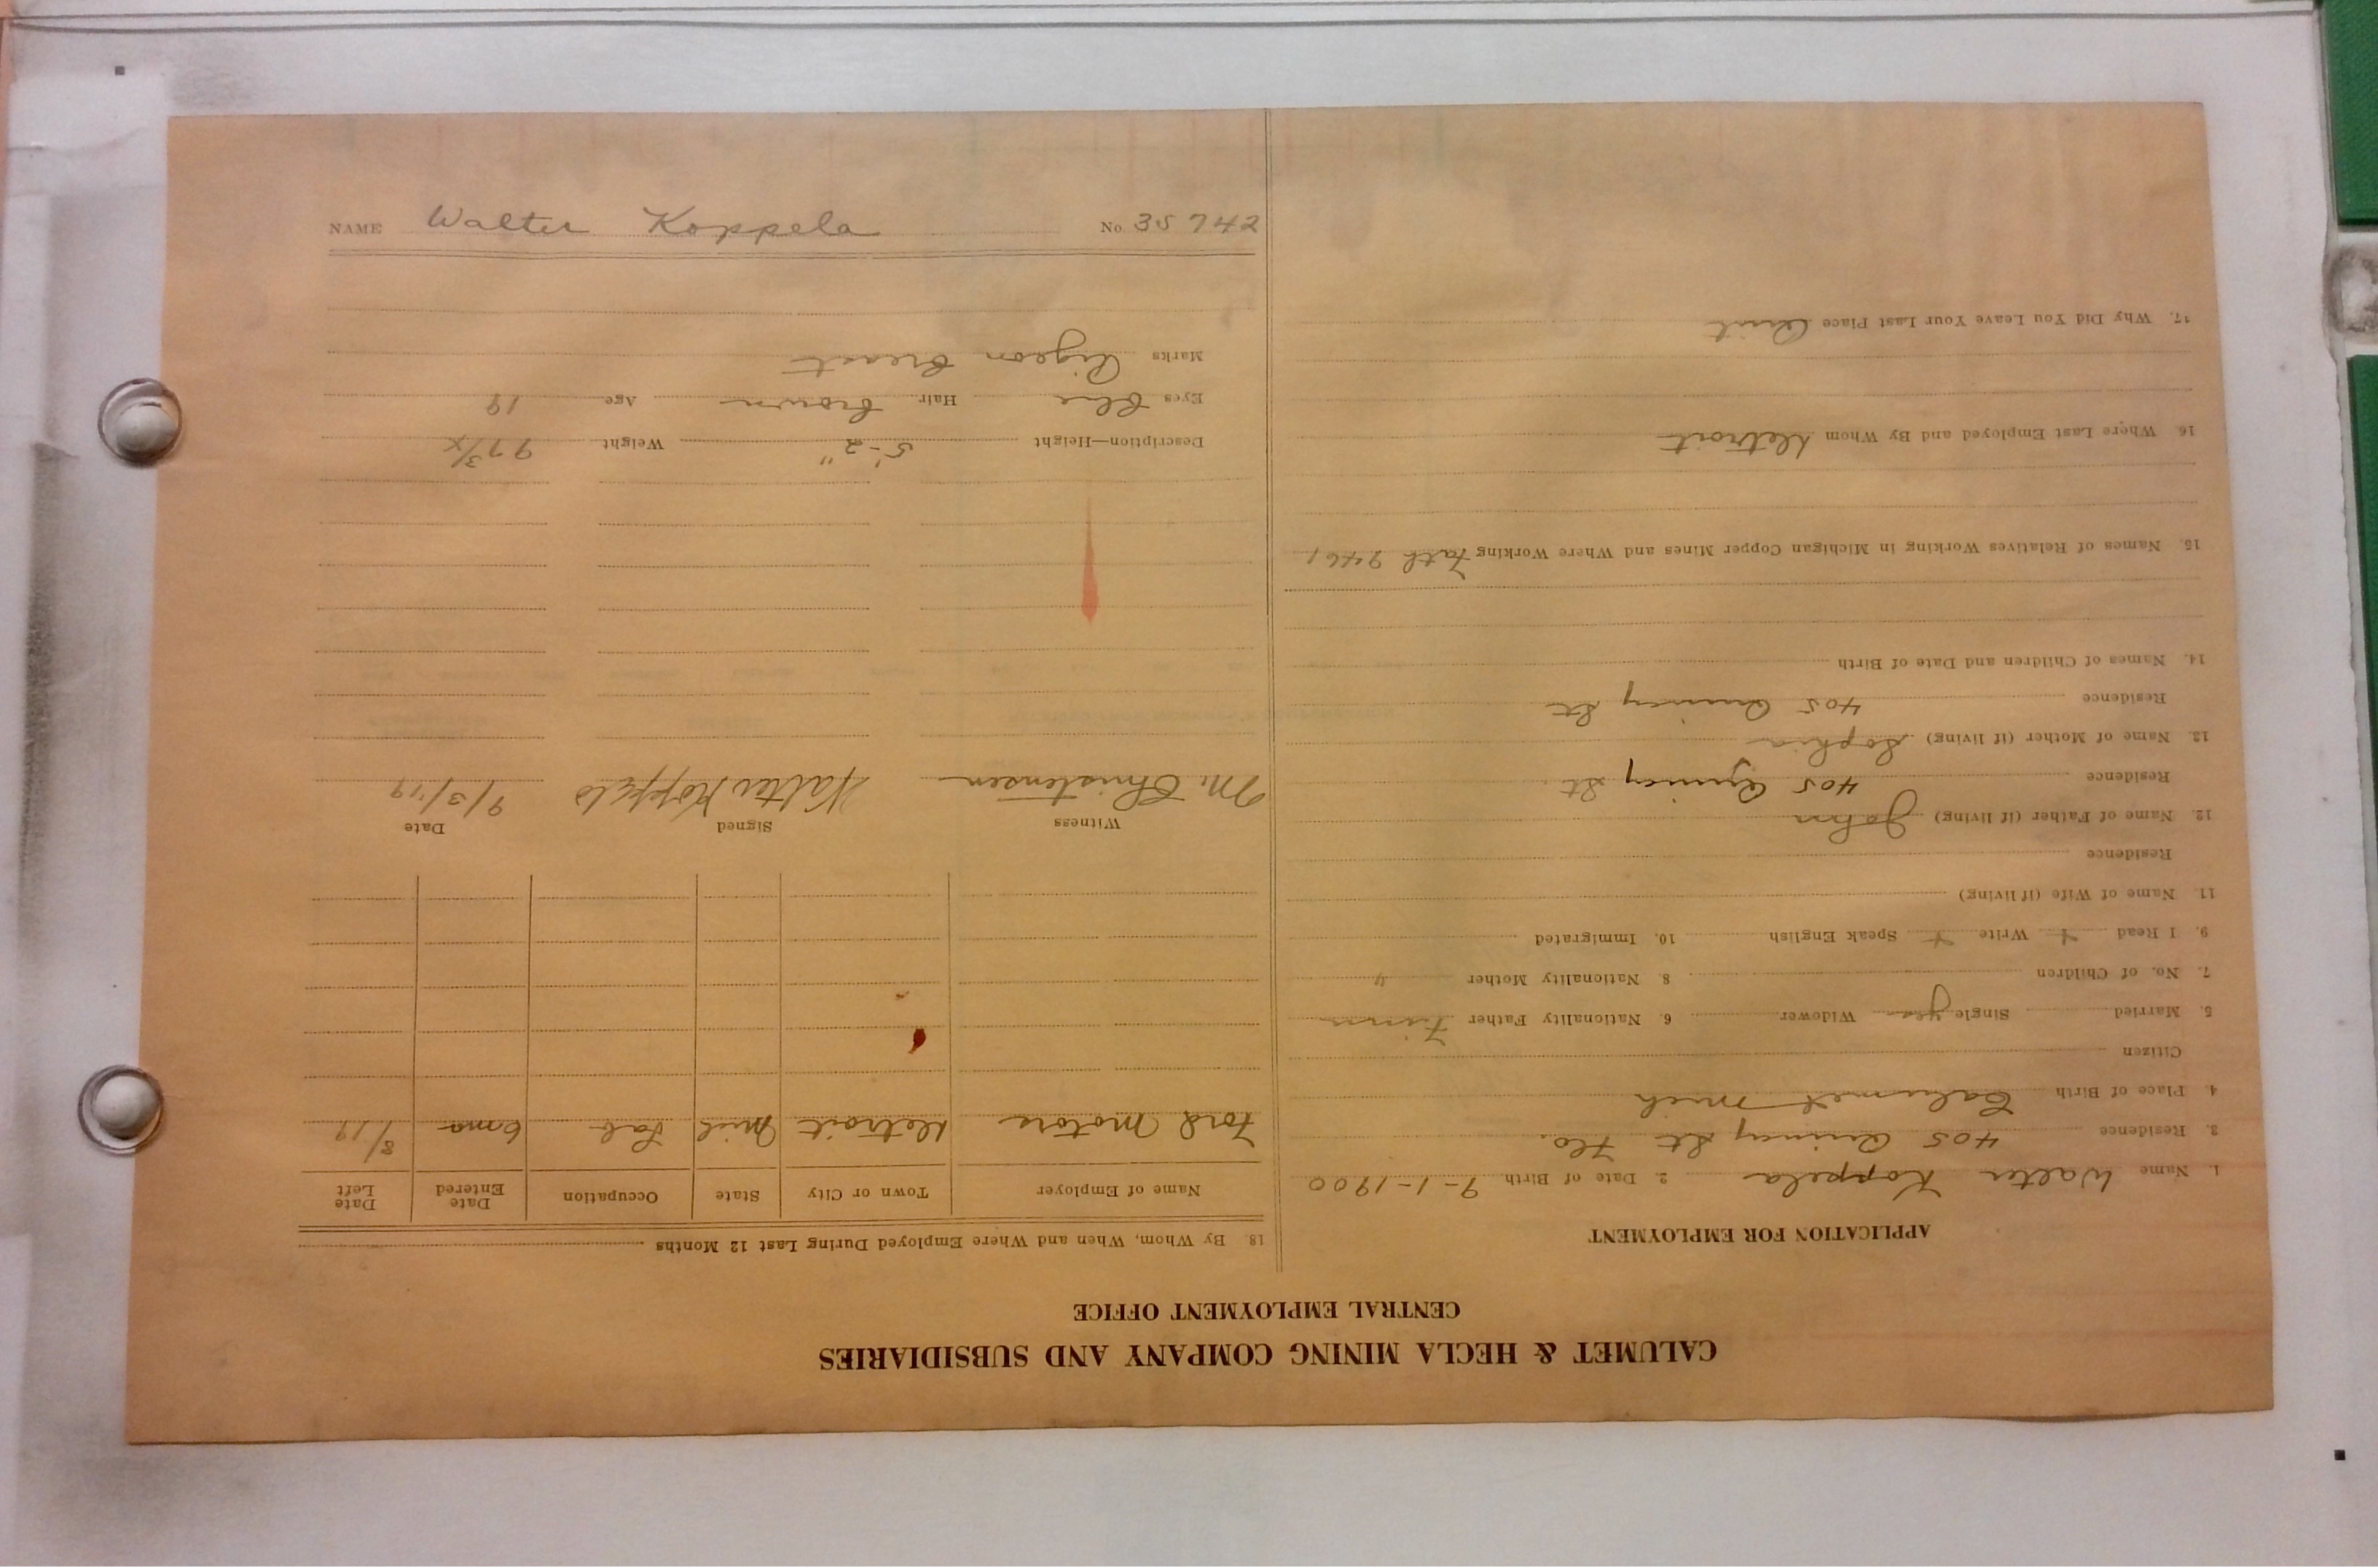 CALUMET & HECLA MINING COMPANY AND SUBSIDIARIES
CENTRAL EMPLOYMENT OFFICE
APPLICATION FOR EMPLOYMENT
1. Name Walter Koppela 2. Date of Birth 9-1-1900
3. Residence 405 Quincy St Flo.
4. Place of Birth Calumet Mich
Citizen
5. Married Single yes Widower 6. Nationality Father Finn
7. No. of Children 8. Nationality Mother "
9. I Read + Write + Speak English 10. Immigrated
11. Name of Wife (if living)
Residence
12. Name of Father (if living) John
Residence 405 Quincy St.
13. Name of Mother (if living) Sophia
Residence 405 Quincy St
14. Names of Children and Date of Birth
15. Names of Relatives Working in Michigan Copper Mines and Where Working Fath 9461
16. Where Last Employed and By Whom Detroit
17. Why Did You Leave Your Last Place Quit
18. By Whom, When and Where Employed During Last 12 Months
Name of Employer Town or City State Occupation Date Entered Date Left
Ford Motors Detroit Mich Lab 6 mo 8/19
Witness Signed Date
M. Christensen Walter Koppela 9/3/19
Description—Height 5'-2" Weight 97
Eyes Blue Hair Brown Age 19
Marks Pigeon Breast
NAME Walter Koppela No. 35742